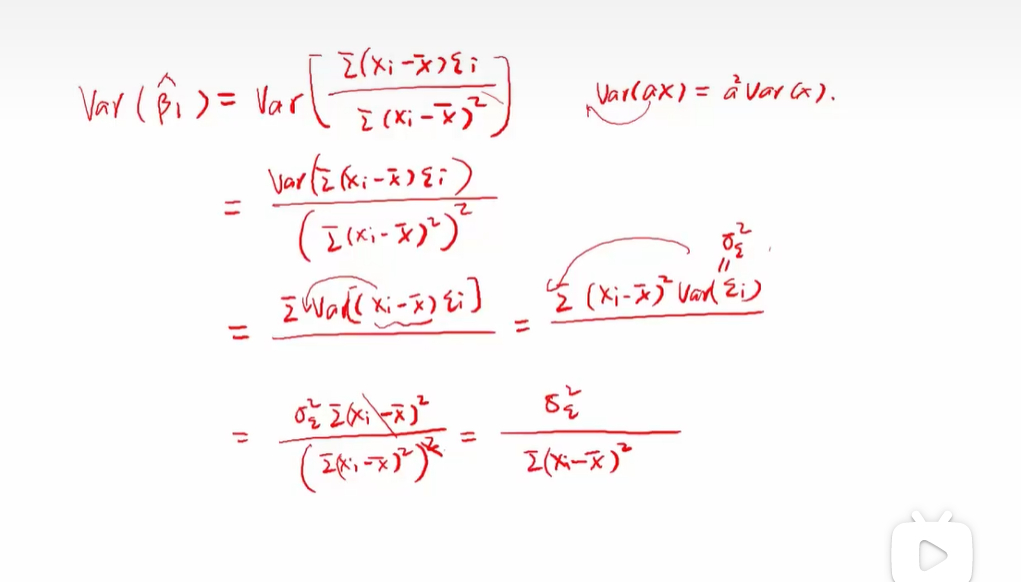 Var(β̂₁) = Var[Σ(xᵢ-x̄)εᵢ / Σ(xᵢ-x̄)²]    Var(ax) = a²Var(x).
= Var(Σ(xᵢ-x̄)εᵢ) / (Σ(xᵢ-x̄)²)²
σ²_ε
॥
= ΣVar[(xᵢ-x̄)εᵢ] / = Σ(xᵢ-x̄)²Var(εᵢ) /
= σ²_ε Σ(xᵢ-x̄)² / (Σ(xᵢ-x̄)²)² = σ²_ε / Σ(xᵢ-x̄)²